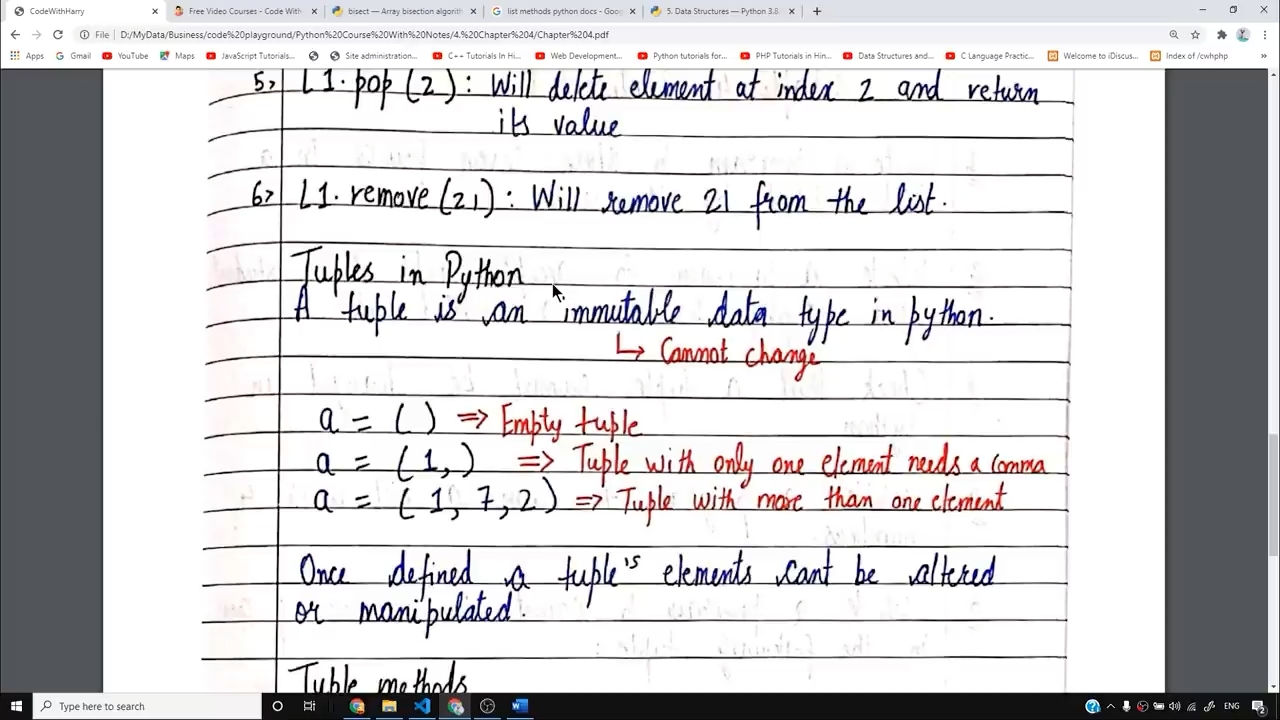 CodeWithHarry
Free Video Courses - Code With
bisect — Array bisection algorith
list methods python docs - Goog
5. Data Structures — Python 3.8.
File | D:/MyData/Business/code%20playground/Python%20Course%20With%20Notes/4.%20Chapter%204/Chapter%204.pdf
Apps
Gmail
YouTube
Maps
JavaScript Tutorials...
Site administration...
Web Development...
Python tutorials for...
PHP Tutorials in Hin...
Data Structures and...
C Language Practic...
Welcome to iDiscus...
Index of /cwhphp
5> L1.pop(2): Will delete element at index 2 and return
its value
6> L1.remove(21): Will remove 21 from the list.
Tuples in Python
A tuple is an immutable data type in python.
↳ Cannot change
a = ( ) => Empty tuple
a = (1,) => Tuple with only one element needs a comma
a = (1, 7, 2) => Tuple with more than one element
Once defined a tuple's elements cant be altered
or manipulated.
Tuple methods
Type here to search
ENG
2